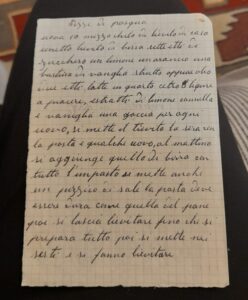 Pizze di pasqua
uova 20 mezzo chilo di lievito in casa
lievito di birra sette etti di
zucchero un limone un arancio una
bustina di vaniglia strutto oppure olio
due etti latte un quarto
a piacere, estratto di limone cannella
e vaniglia una goccia per ogni
uovo, si mette il lievito la sera con
la pasta e qualche uovo, al mattino
si aggiunge quello di birra con
tutto l'impasto si mette anche
un pizzico di sale la pasta deve
essere dura come quella del pane
poi si lascia lievitare fino che si
prepara tutto poi si mette ne
e si fanno lievitare